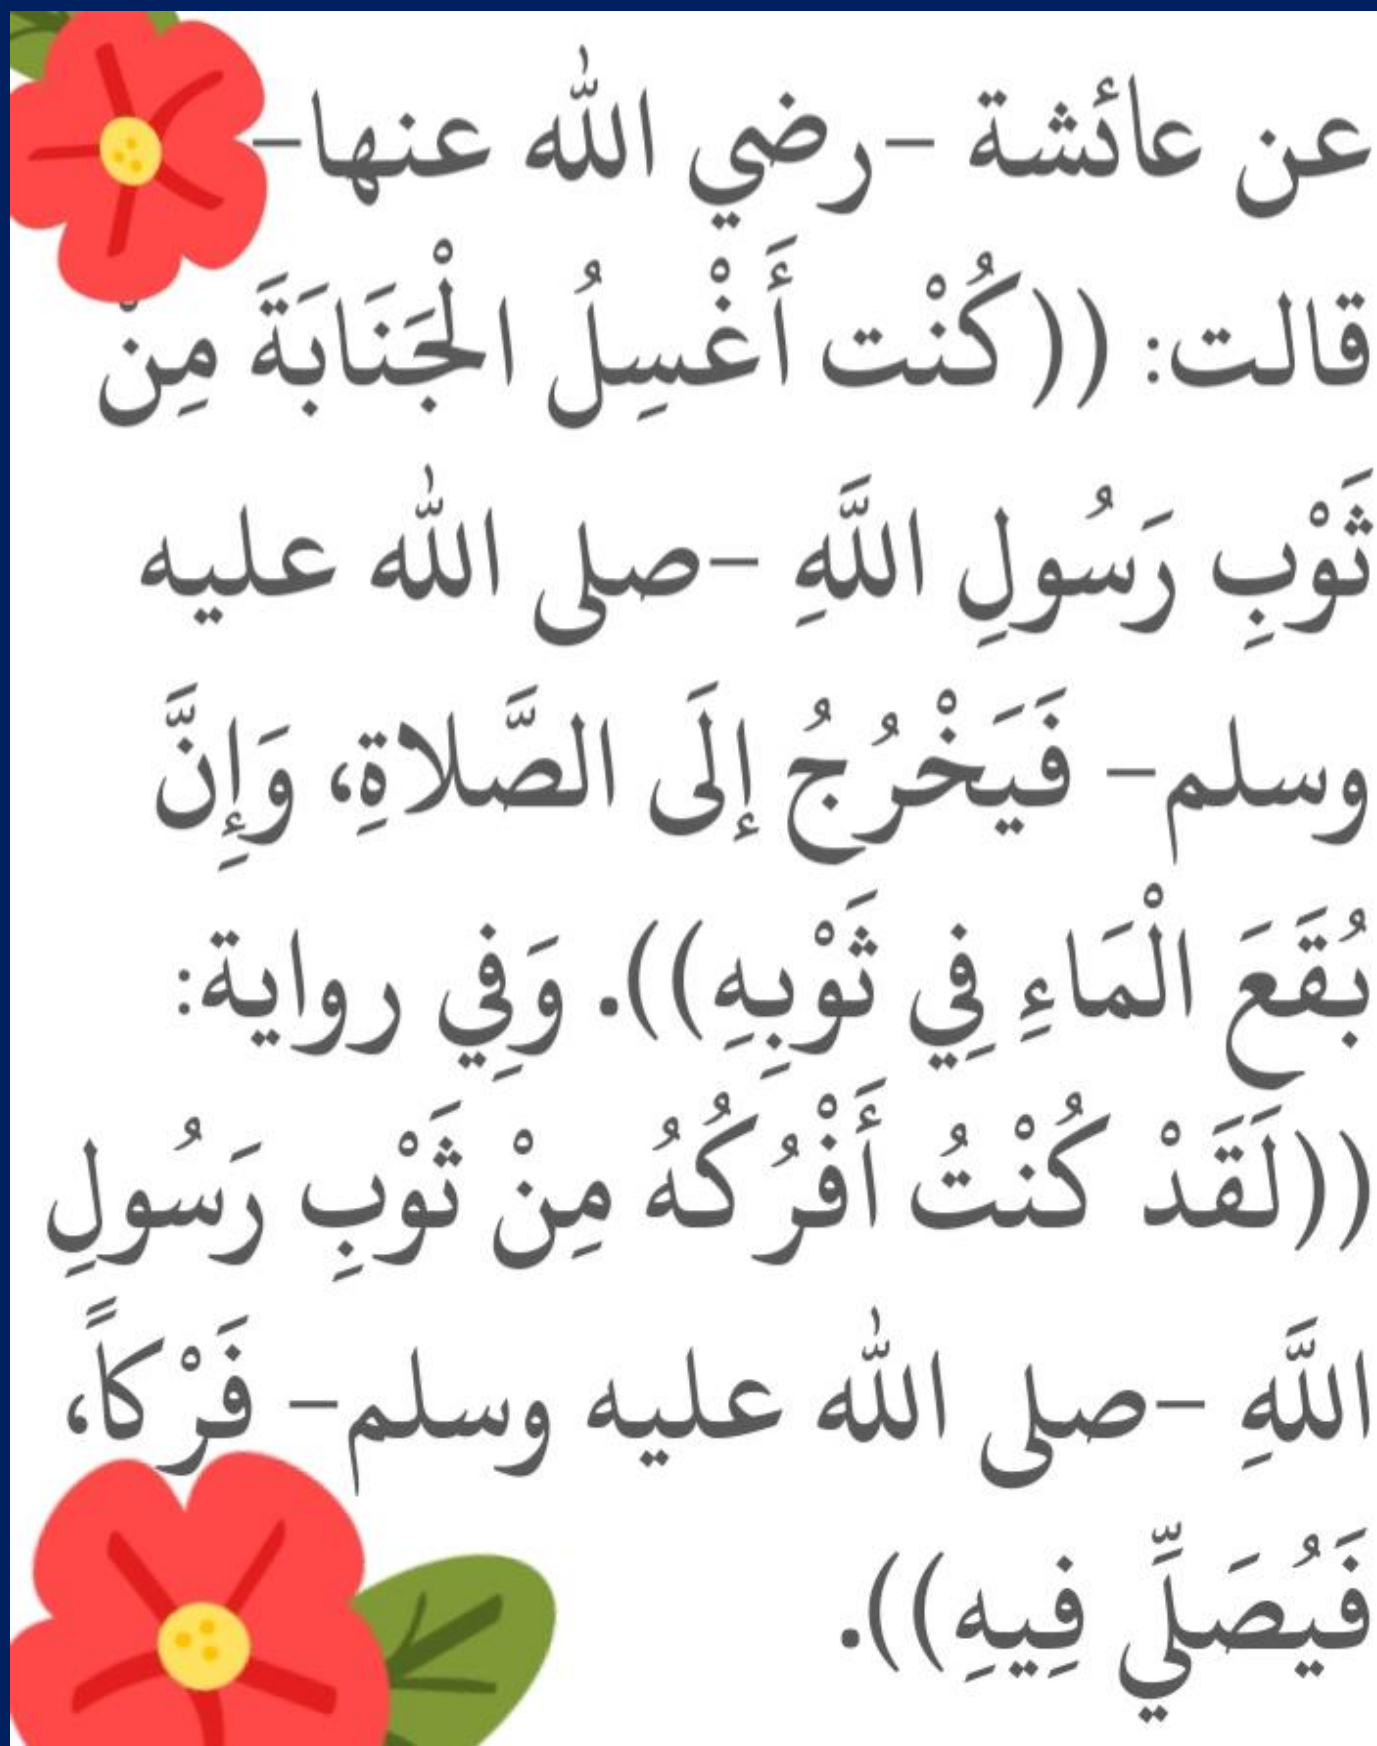 عن عائشة -رضي الله عنها-
قالت: ((كُنْت أَغْسِلُ الْجَنَابَةَ مِنْ
ثَوْبِ رَسُولِ اللَّهِ -صلى الله عليه
وسلم- فَيَخْرُجُ إلَى الصَّلاةِ، وَإِنَّ
بُقَعَ الْمَاءِ فِي ثَوْبِهِ)). وَفِي رواية:
((لَقَدْ كُنْتُ أَفْرُكُهُ مِنْ ثَوْبِ رَسُولِ
اللَّهِ -صلى الله عليه وسلم- فَرْكاً،
فَيُصَلِّي فِيهِ)).